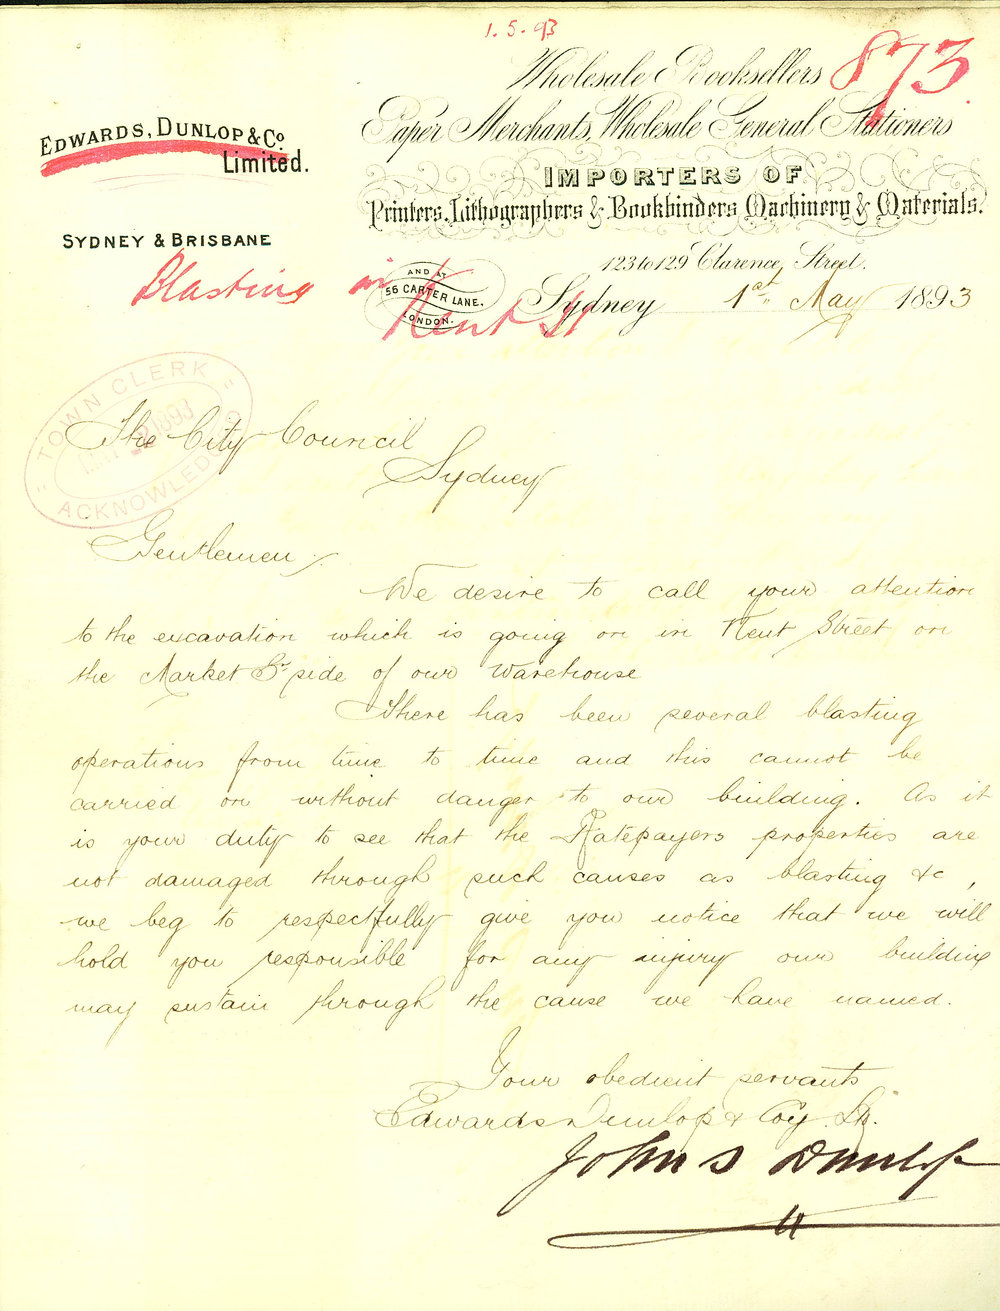 1.5.93
873
Wholesale Booksellers
Paper Merchants, Wholesale General Stationers
EDWARDS, DUNLOP & Co.
Limited.
IMPORTERS OF
Printers, Lithographers & Bookbinders Machinery & Materials.
SYDNEY & BRISBANE
123 to 129 Clarence Street.
Blasting in
Kent St
AND AT
56 CARTER LANE.
LONDON.
Sydney 1st May 1893
"TOWN CLERK"
MAY 2 1893
ACKNOWLEDGED
The City Council
Sydney
Gentlemen
We desire to call your attention
to the excavation which is going on in Kent Street on
the Market St side of our Warehouse
There has been several blasting
operations from time to time and this cannot be
carried on without danger to our building. As it
is your duty to see that the Ratepayers properties are
not damaged through such causes as blasting &c,
we beg to respectfully give you notice that we will
hold you responsible for any injury our building
may sustain through the cause we have named.
Your obedient servants
Edwards Dunlop & Coy. Ld.
John S Dunlop